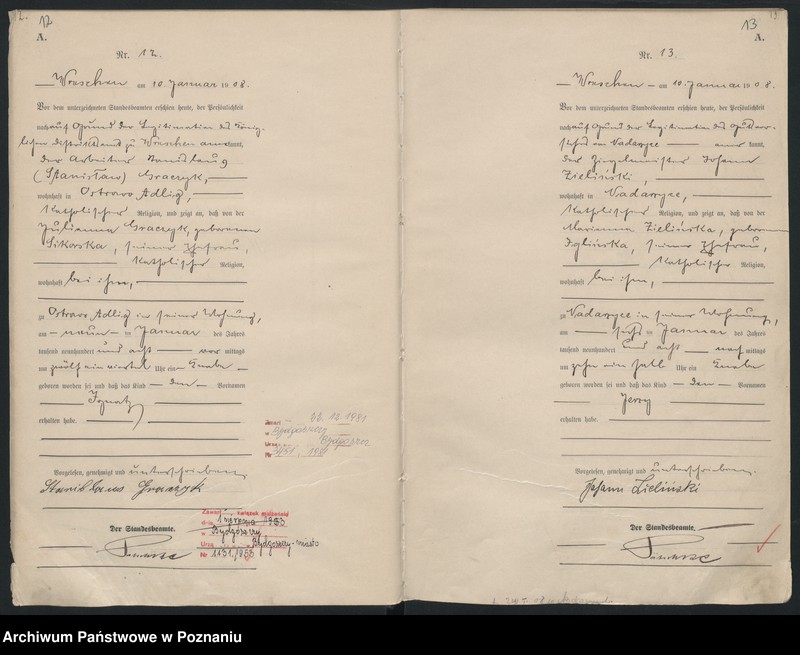 12.
12
A.
Nr. 12.
Wreschen am 10. Januar 1908.
Vor dem unterzeichneten Standesbeamten erschien heute, der Persönlichkeit
nach auf Grund der Legitimation des König-
lichen Distriktsamts zu Wreschen anerkannt,
der Arbeiter Stanislaus
(Stanisław) Graczyk,
wohnhaft in Ostrowo Adlig,
katholischer Religion, und zeigt an, daß von der
Julianna Graczyk, geborenen
Sikorska, seiner Ehefrau,
katholischer Religion,
wohnhaft bei ihm,
zu Ostrowo Adlig in seiner Wohnung,
am neun ten Januar des Jahres
tausend neunhundert und acht vor mittags
um zwölf ein viertel Uhr ein Knabe
geboren worden sei und daß das Kind den Vornamen
Ignatz
erhalten habe.
Vorgelesen, genehmigt und unterschrieben.
Stanislaus Graczyk
Der Standesbeamte.
1981
Bydgoszczy
Bydgoszcz
Zawarł związek małżeński
dnia 1 1953
w Bydgoszczy
Urz. Bydgoszcz-miasto
Nr 1131/1953
13
A.
Nr. 13.
Wreschen am 10. Januar 1908.
Vor dem unterzeichneten Standesbeamten erschien heute, der Persönlichkeit
nach auf Grund der Legitimation des
Nadarzyce anerkannt,
der Ziegelmeister Johann
Zieliński,
wohnhaft in Nadarzyce,
katholischer Religion, und zeigt an, daß von der
Marianna Zielińska, geborenen
seiner Ehefrau,
katholischer Religion,
wohnhaft bei ihm,
zu Nadarzyce in seiner Wohnung,
am sechs ten Januar des Jahres
tausend neunhundert und acht nach mittags
um zehn ein halb Uhr ein Knabe
geboren worden sei und daß das Kind den Vornamen
Jerzy
erhalten habe.
Vorgelesen, genehmigt und unterschrieben.
Johann Zieliński
Der Standesbeamte.
Archiwum Państwowe w Poznaniu